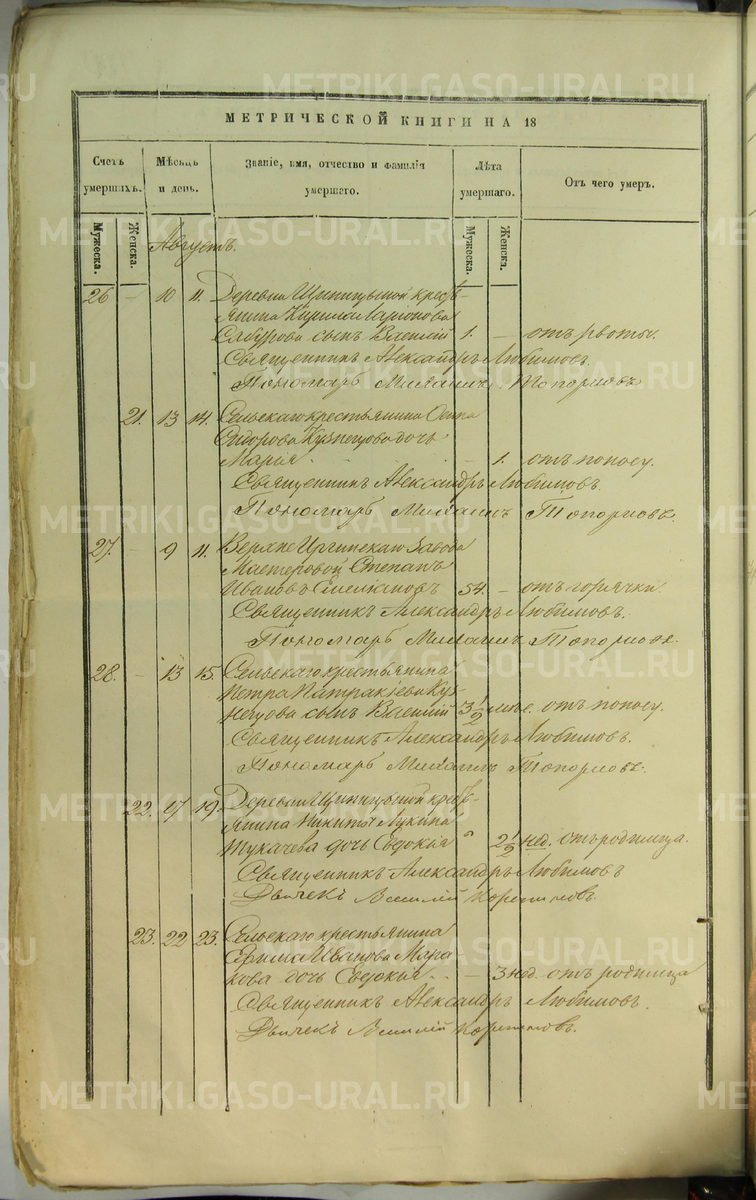 METRIKI.GASO-URAL.RU
МЕТРИЧЕСКОЙ КНИГИ НА 18
Счетъ умершихъ.
Мѣсяцъ и день.
Званіе, имя, отчество и фамилія умершаго.
Лѣта умершаго.
Отъ чего умеръ.
Мужеска.
Женска.
Мужеска.
Женска.
Августъ.
26 – 10 11. Деревни Щипицыной кресть-
янина Кирила Ларіонова
Сабурова сынъ Василій 1. – отъ рвоты.
Священникъ Александръ Любимовъ.
Пономарь Михаилъ Топорковъ
21. 13 14. Сельскаго крестьянина Осипа
Сидорова Кузнецова дочь
Марья – 1. отъ поносу.
Священникъ Александръ Любимовъ.
Пономарь Михаилъ Топорковъ.
27. – 9 11. Верхне Иргинскаго Завода
Мастеровой Степанъ
Ивановъ Емельяновъ 54. – отъ горячки.
Священникъ Александръ Любимовъ.
Пономарь Михаилъ Топорковъ.
28. – 13 15. Сельскаго крестьянина
Петра Патракіева Куз-
нецова сынъ Василій 3 1/2 мѣс. отъ поносу.
Священникъ Александръ Любимовъ.
Пономарь Михаилъ Топорковъ.
22. 17 19. Деревни Щипицыной кресть-
янина Никиты Лукина
Тукачева дочь Евдокія " 2 1/2 нед. отъ родимца.
Священникъ Александръ Любимовъ
Дьячекъ Василій
23. 22 23. Сельскаго крестьянина
Ефима Иванова Мара-
кова дочь Евдокія – 3 нед. отъ родимца
Священникъ Александръ Любимовъ.
Дьячекъ Василій